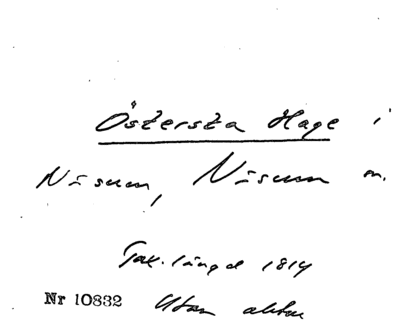 Östersta Hage i
Näsum, Näsum sn.
Tax.längd 1814
Nr 10832 Utan aktnr